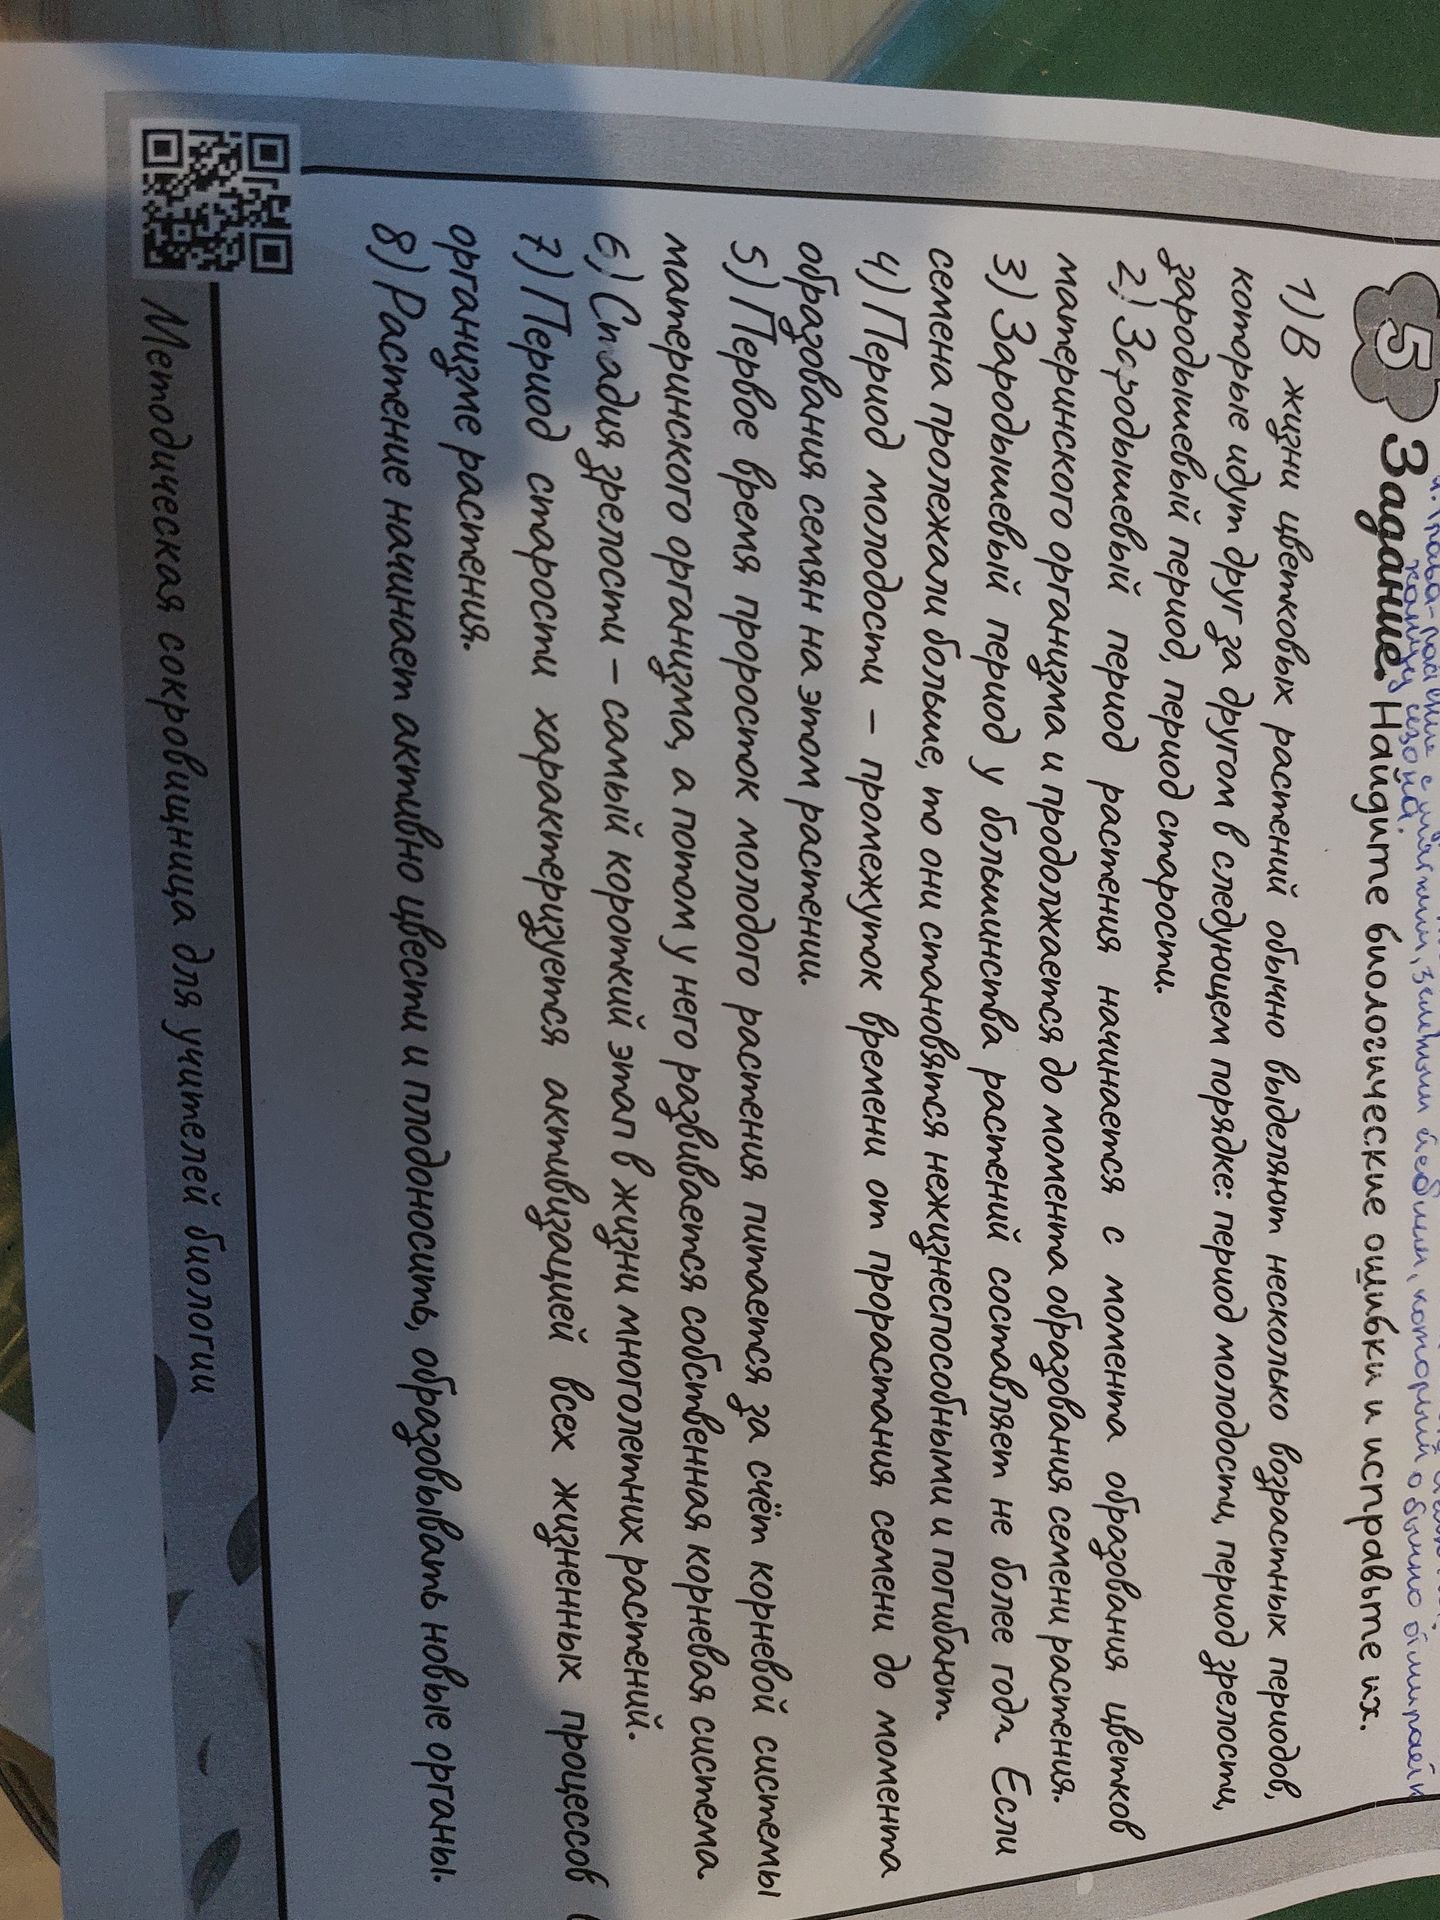 5 Задание. Найдите биологические ошибки и исправьте их.
1) В жизни цветковых растений обычно выделяют несколько возрастных периодов,
которые идут друг за другом в следующем порядке: период молодости, период зрелости,
зародышевый период, период старости.
2) Зародышевый период растения начинается с момента образования цветков
материнского организма и продолжается до момента образования семени растения.
3) Зародышевый период у большинства растений составляет не более года. Если
семена пролежали больше, то они становятся нежизнеспособными и погибают.
4) Период молодости – промежуток времени от прорастания семени до момента
образования семян на этом растении.
5) Первое время проросток молодого растения питается за счёт корневой системы
материнского организма, а потом у него развивается собственная корневая система.
6) Стадия зрелости – самый короткий этап в жизни многолетних растений.
7) Период старости характеризуется активизацией всех жизненных процессов в
организме растения.
8) Растение начинает активно цвести и плодоносить, образовывать новые органы.
Методическая сокровищница для учителей биологии